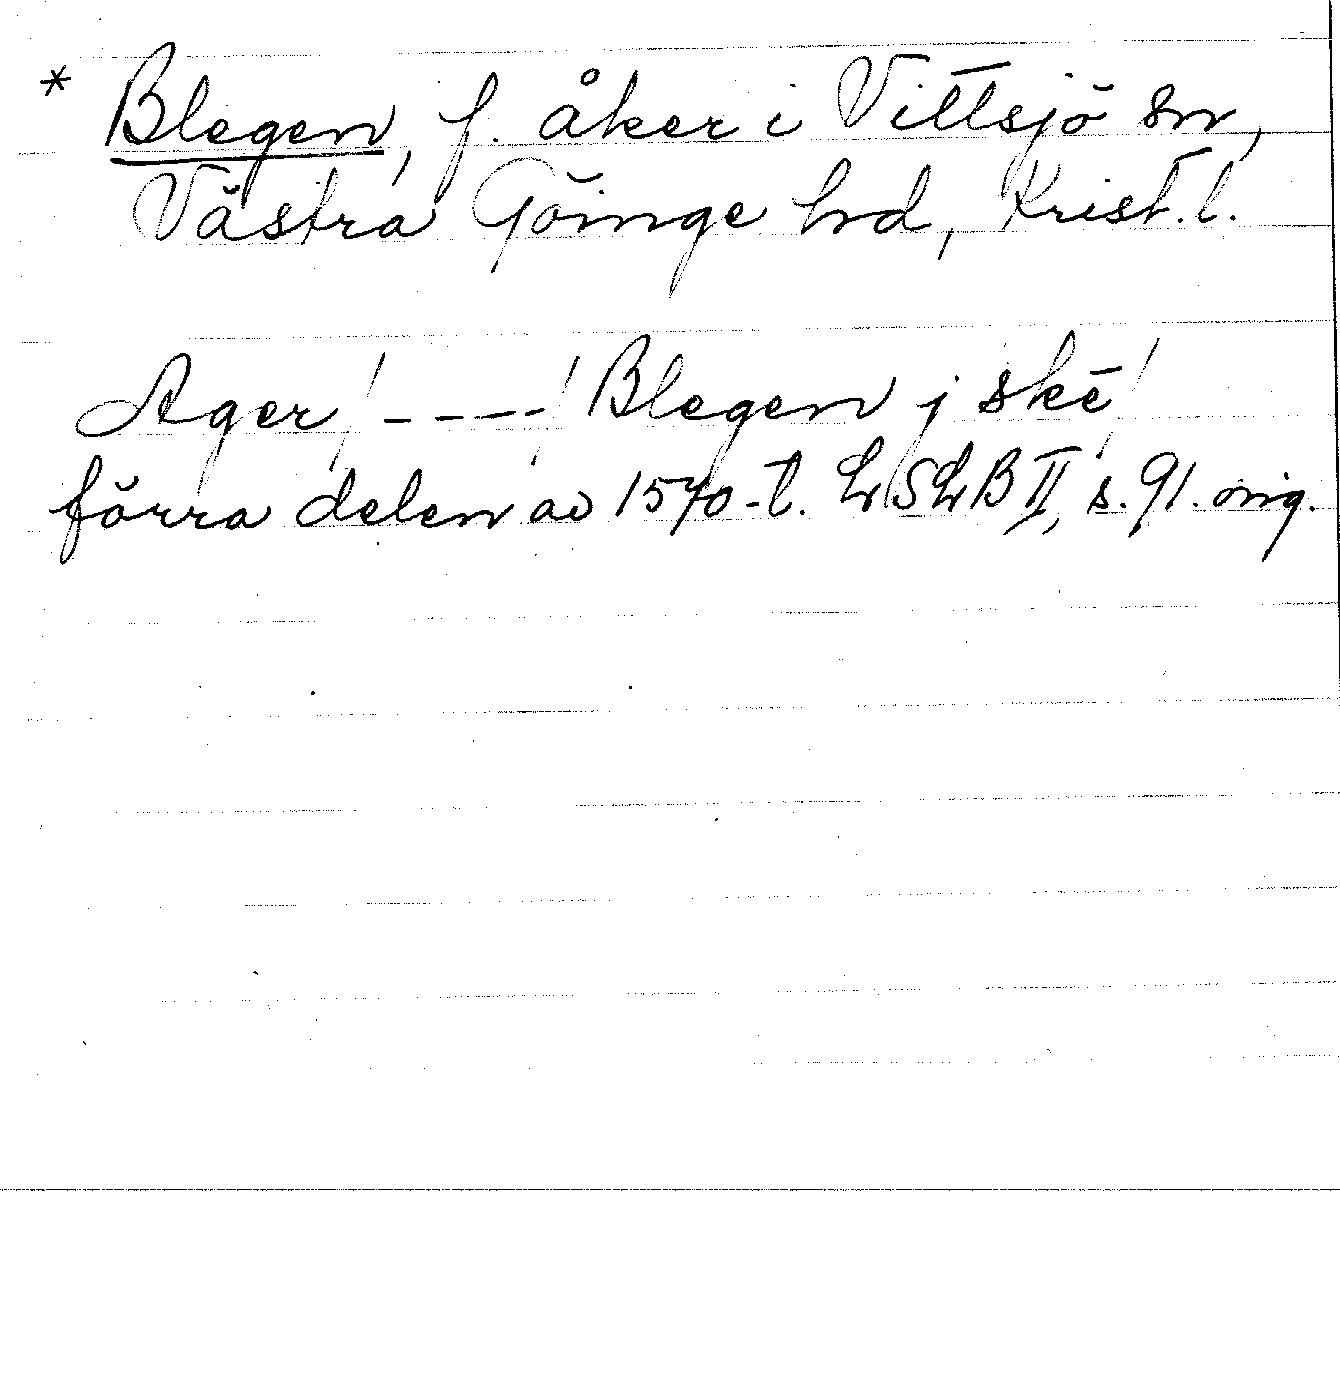 * Blegen, f. åker i Vittsjö sn,
Västra Göinge hd, Krist. l.
Ager / - - - - / Blegen j skē /
förra delen av 1570-t. LSLB II, s. 91. orig.